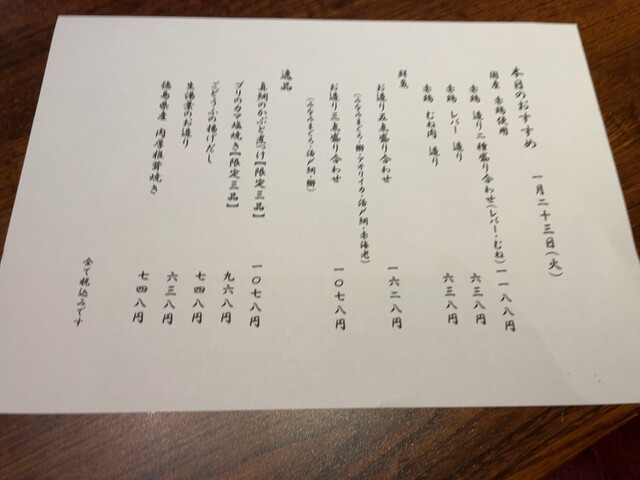 本日のおすすめ 一月二十三日(火)
国産 赤鶏使用
赤鶏 造り二種盛り合わせ(レバー・むね) 一一八八円
赤鶏 レバー 造り 六三八円
赤鶏 むね肉 造り 六三八円
鮮魚
お造り五点盛り合わせ 一六二八円
(みなみまぐろ・鰤・アオリイカ・活〆鯛・赤海老)
お造り三点盛り合わせ 一〇七八円
(みなみまぐろ・活〆鯛・鰤)
逸品
真鯛のかぶと煮つけ【限定三品】 一〇七八円
ブリのカマ塩焼き【限定三品】 九六八円
ごどうふの揚げだし 七四八円
生湯葉のお造り 六三八円
徳島県産 肉厚椎茸焼き 七四八円
全て税込みです